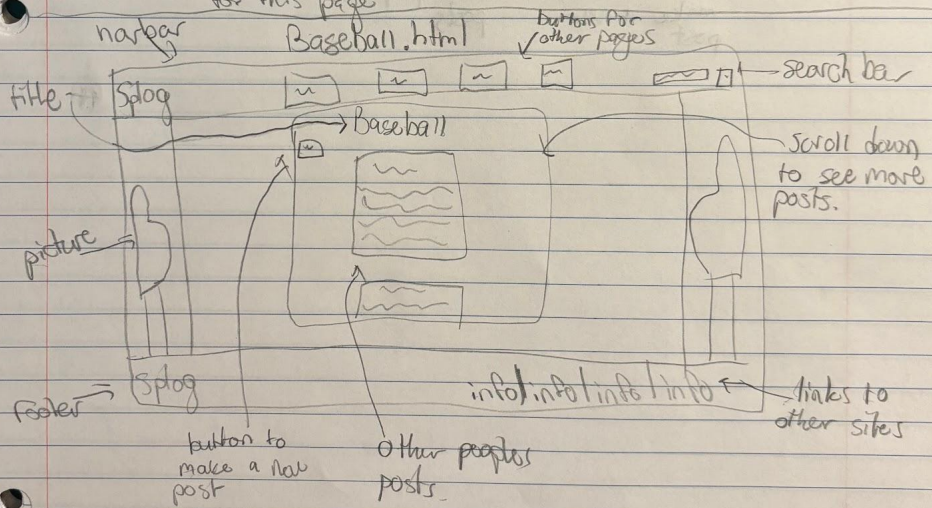 for this page
navbar
Baseball.html
buttons for
other pages
search bar
title
Splog
Baseball
scroll down
to see more
posts.
picture
Splog
info/info/info/info
footer
links to
other sites
button to
make a new
post
Other peoples
posts.